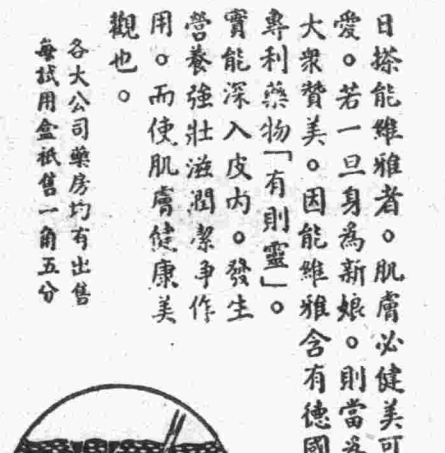 日搽能維雅者。肌膚必健美可
愛。若一旦身為新娘。則當為
大衆贊美。因能維雅含有德國
專利藥物「有則靈」。
實能深入皮內。發生
營養強壯滋潤潔爭作
用。而使肌膚健康美
觀也。
各大公司藥房均有出售
每試用盒祇售一角五分